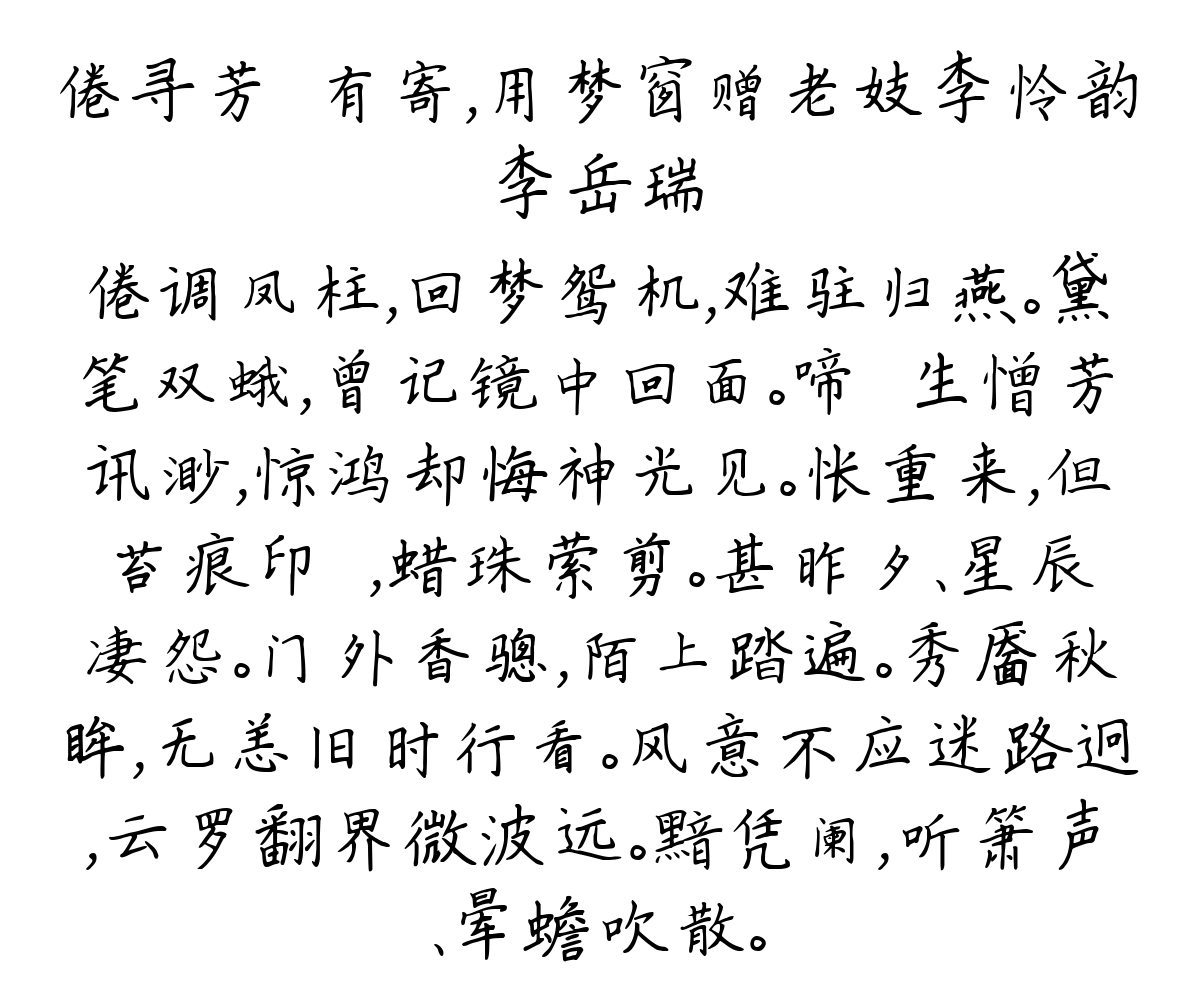 倦寻芳　有寄,用梦窗赠老妓李怜韵
李岳瑞
倦调凤柱,回梦鸳机,难驻归燕。黛
笔双蛾,曾记镜中回面。啼　生憎芳
讯渺,惊鸿却悔神光见。怅重来,但
苔痕印　,蜡珠萦剪。甚昨夕、星辰
凄怨。门外香骢,陌上踏遍。秀靥秋
眸,无恙旧时行看。风意不应迷路迥
,云罗翻界微波远。黯凭阑,听箫声
、晕蟾吹散。